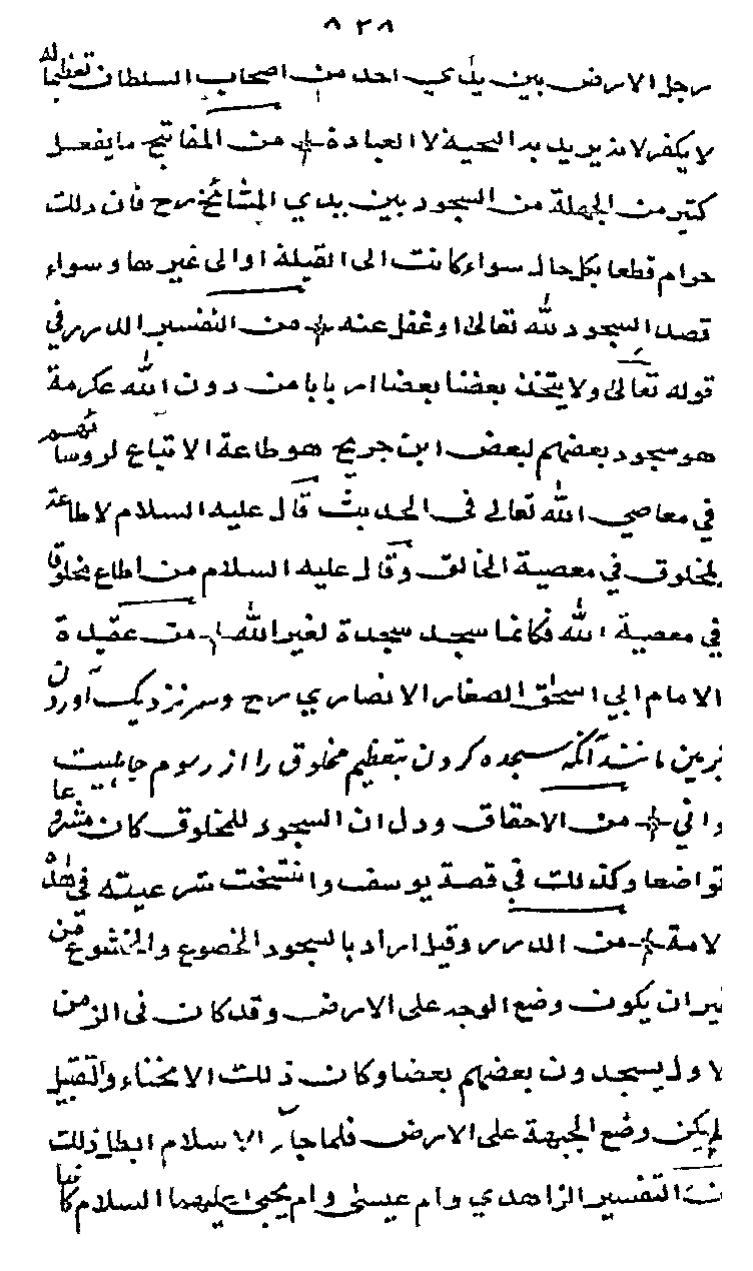 ٨٢٨
رجل الارض بين يدي احد من اصحاب السلطان تعظيما له
لا يكفر لانه يريد به التحية لا العبادة من المفاتيح ما يفعل
كثير من الجهلة من السجود بين يدي المشائخ رح فان ذلك
حرام قطعا بكل حال سواء كانت الى القبلة او الى غيرها وسواء
قصد السجود لله تعالى او غفل عنه من التفسير الدرر في
قوله تعالى ولا يتخذ بعضنا بعضا اربابا من دون الله عكرمة
هو سجود بعضهم لبعض ابن جريج هو طاعة الاتباع لروسائهم
في معاصي الله تعالى في الحديث قال عليه السلام لا طاعة
لمخلوق في معصية الخالق وقال عليه السلام من اطاع مخلوقا
في معصية الله فكانما سجد سجدة لغير الله من عقيدة
الامام ابي اسحق الصفار الانصاري رح وسر نزديك آوردن
برين مانند آنكه سجده كردن بتعظيم مخلوق را از رسوم جاهليت
وافي من الاحقاق ودل ان السجود للمخلوق كان مشروعا
تواضعا وكذلك في قصة يوسف وانتسخت شرعيته في هذه
لامة من الدرر وقيل اراد بالسجود الخضوع والخشوع من
غير ان يكون وضع الوجه على الارض وقد كان في الزمن
لاول يسجدون بعضهم بعضا وكان ذلك الانحناء والتقبيل
لم يكن وضع الجبهة على الارض فلما جاء الاسلام ابطل ذلك
من التفسير الزاهدي وام عيسى وام يحيى عليهما السلام كانتا